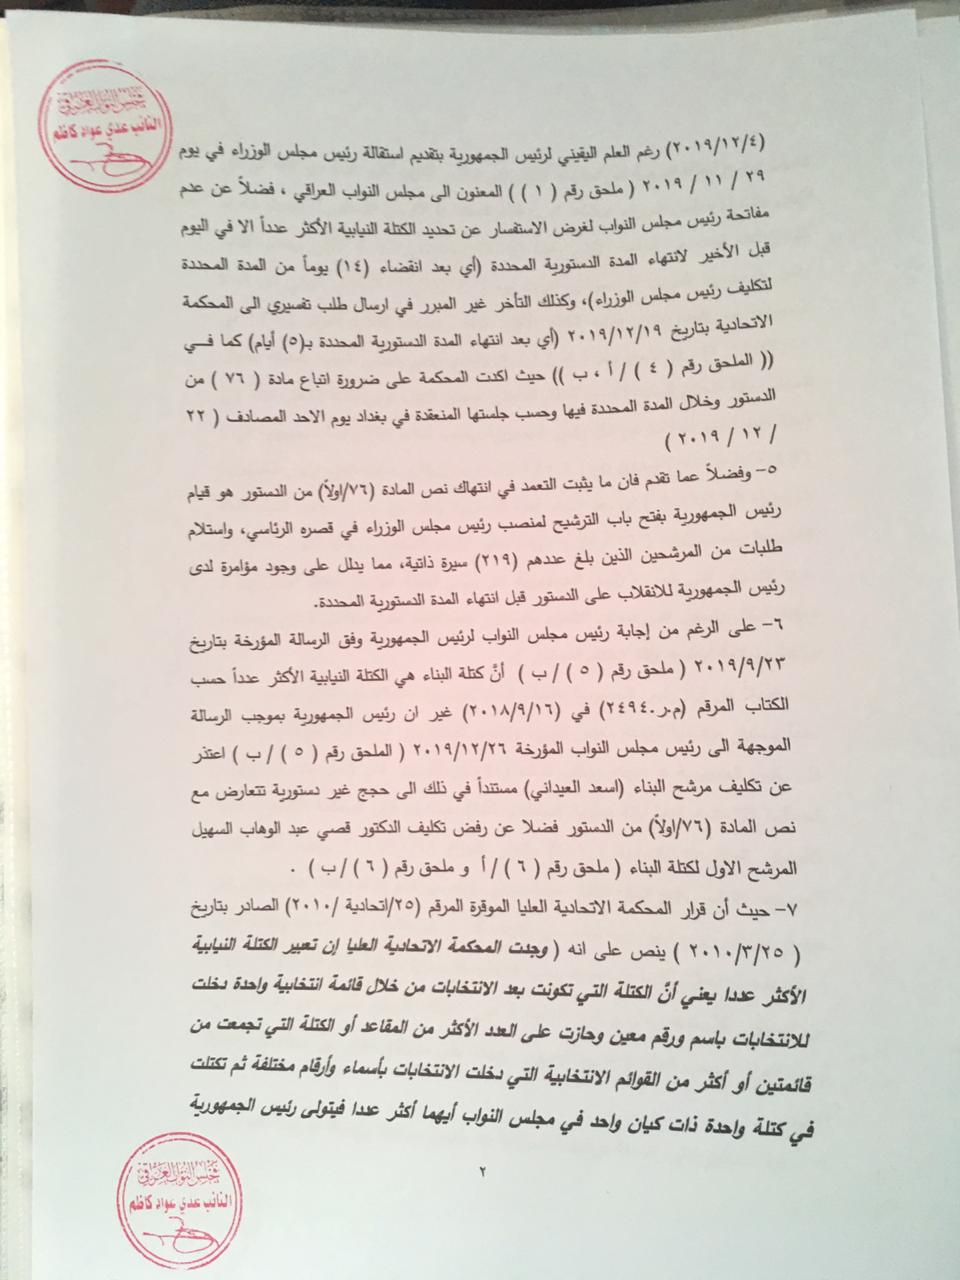 مجلس النواب العراقي
النائب عدي عواد كاظم
(٢٠١٩/١٢/٤) رغم العلم اليقيني لرئيس الجمهورية بتقديم استقالة رئيس مجلس الوزراء في يوم
٢٩ / ١١ / ٢٠١٩ ( ملحق رقم ( ١ ) ) المعنون الى مجلس النواب العراقي ، فضلاً عن عدم
مفاتحة رئيس مجلس النواب لغرض الاستفسار عن تحديد الكتلة النيابية الأكثر عدداً الا في اليوم
قبل الأخير لانتهاء المدة الدستورية المحددة (أي بعد انقضاء (١٤) يوماً من المدة المحددة
لتكليف رئيس مجلس الوزراء)، وكذلك التأخر غير المبرر في ارسال طلب تفسيري الى المحكمة
الاتحادية بتاريخ ٢٠١٩/١٢/١٩ (أي بعد انتهاء المدة الدستورية المحددة بـ(٥) أيام) كما فــي
(( الملحق رقم ( ٤ ) / أ ، ب )) حيث اكدت المحكمة على ضرورة اتباع مادة ( ٧٦ ) من
الدستور وخلال المدة المحددة فيها وحسب جلستها المنعقدة في بغداد يوم الاحد المصادف ( ٢٢
/ ١٢ / ٢٠١٩ )
٥- وفضلاً عما تقدم فان ما يثبت التعمد في انتهاك نص المادة (٧٦/اولاً) من الدستور هو قيام
رئيس الجمهورية بفتح باب الترشيح لمنصب رئيس مجلس الوزراء في قصره الرئاسي، واستلام
طلبات من المرشحين الذين بلغ عددهم (٢١٩) سيرة ذاتية، مما يدلل على وجود مؤامرة لدى
رئيس الجمهورية للانقلاب على الدستور قبل انتهاء المدة الدستورية المحددة.
٦- على الرغم من إجابة رئيس مجلس النواب لرئيس الجمهورية وفق الرسالة المؤرخة بتاريخ
٢٠١٩/٩/٢٣ ( ملحق رقم ( ٥ ) / ب ) أنَّ كتلة البناء هي الكتلة النيابية الأكثر عدداً حسب
الكتاب المرقم (م.ر.٢٤٩٤) في (٢٠١٨/٩/١٦) غير ان رئيس الجمهورية بموجب الرسالة
الموجهة الى رئيس مجلس النواب المؤرخة ٢٠١٩/١٢/٢٦ ( الملحق رقم ( ٥ ) / ب ) اعتذر
عن تكليف مرشح البناء (اسعد العيداني) مستنداً في ذلك الى حجج غير دستورية تتعارض مع
نص المادة (٧٦/اولاً) من الدستور فضلا عن رفض تكليف الدكتور قصي عبد الوهاب السهيل
المرشح الاول لكتلة البناء ( ملحق رقم ( ٦ ) / أ و ملحق رقم ( ٦ ) / ب ) .
٧- حيث أن قرار المحكمة الاتحادية العليا الموقرة المرقم (٢٥/اتحادية /٢٠١٠) الصادر بتاريخ
( ٢٠١٠/٣/٢٥ ) ينص على انه ( وجدت المحكمة الاتحادية العليا إن تعبير الكتلة النيابية
الأكثر عددا يعني أنَّ الكتلة التي تكونت بعد الانتخابات من خلال قائمة انتخابية واحدة دخلت
للانتخابات باسم ورقم معين وحازت على العدد الأكثر من المقاعد أو الكتلة التي تجمعت من
قائمتين أو أكثر من القوائم الانتخابية التي دخلت الانتخابات بأسماء وأرقام مختلفة ثم تكتلت
في كتلة واحدة ذات كيان واحد في مجلس النواب أيهما أكثر عددا فيتولى رئيس الجمهورية
٢
مجلس النواب العراقي
النائب عدي عواد كاظم